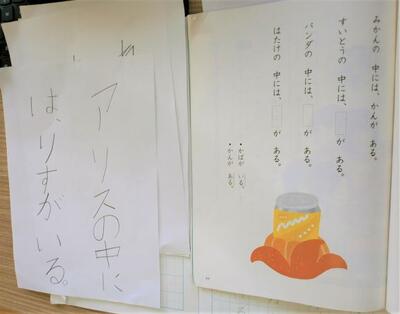 みかんの 中には、かんが ある。
すいどうの 中には、□が ある。
パンダの 中には、□が ある。
はたけの 中には、□が ある。
・かばが いる。
・かんが ある。
アアリスの中に
は、りすがいる。